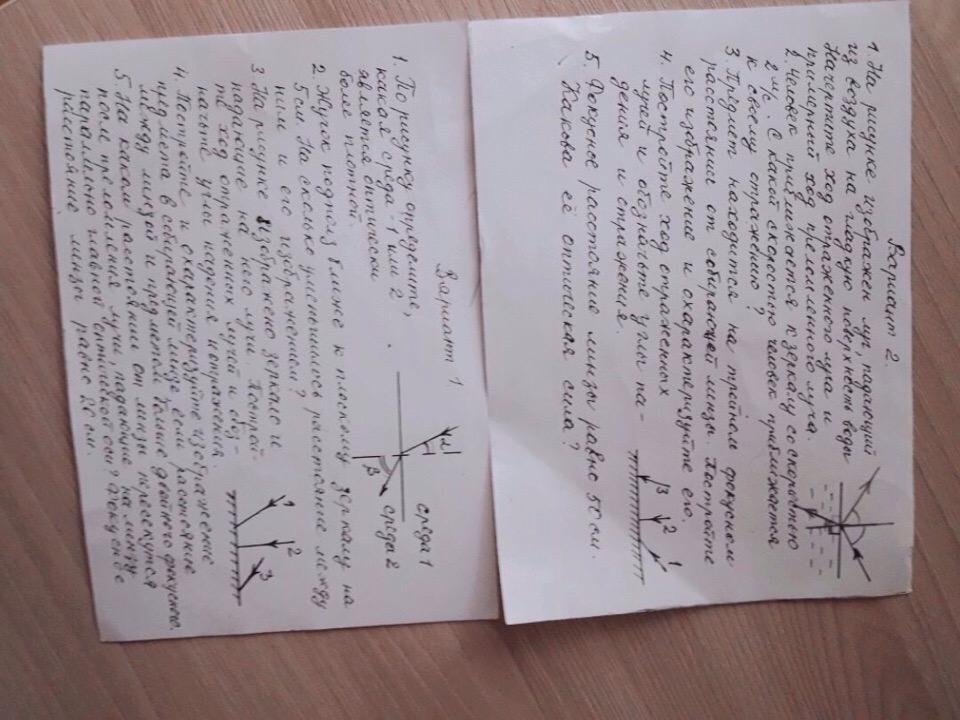 Вариант 2.
1. На рисунке изображен луч, падающий
из воздуха на гладкую поверхность воды
Начертите ход отраженного луча и
примерный ход преломленного луча.
2. Человек приближается к зеркалу со скоростью
2 м/с. С какой скоростью человек приближается
к своему отражению?
3. Предмет находится на тройном фокусном
расстоянии от собирающей линзы. Постройте
его изображение и охарактеризуйте его.
4. Постройте ход отраженных
лучей и обозначьте углы па-
дения и отражения.
3 2 1
5. Фокусное расстояние линзы равно 50 см.
Какова её оптическая сила?
Вариант 1.
1. По рисунку определите,
какая среда - 1 или 2
является оптически
более плотной.
α
среда 1
β
среда 2
2. Жучок подполз ближе к плоскому зеркалу на
5 см. На сколько уменьшилось расстояние между
ним и его изображением?
3. На рисунке изображено зеркало и
падающие на него лучи. Построй-
те ход отраженных лучей и обоз-
начьте углы падения и отражения.
1 2 3
4. Постройте и охарактеризуйте изображение
предмета в собирающей линзе, если расстояние
между линзой и предметом больше двойного фокусного.
5. На каком расстоянии от линзы пересекутся
после преломления лучи, падающие на линзу
параллельно главной оптической оси? Фокусное
расстояние линзы равно 20 см.